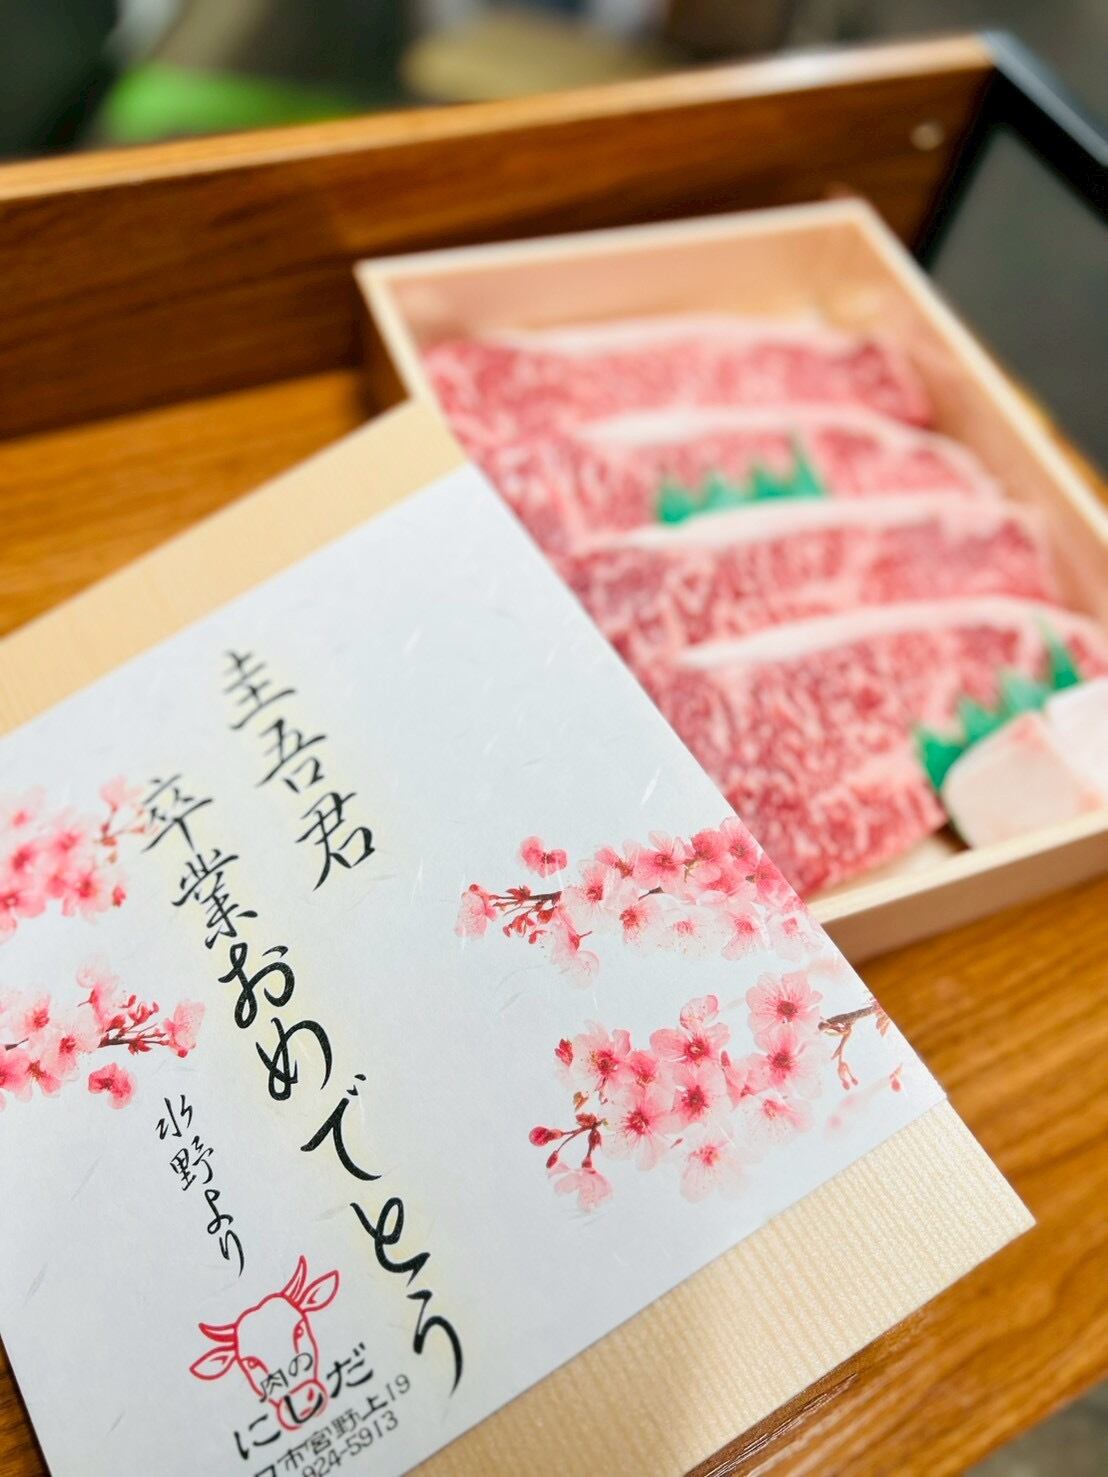 圭吾君
卒業おめでとう
水野より
肉の
にしだ
市宮野上19
924-5913